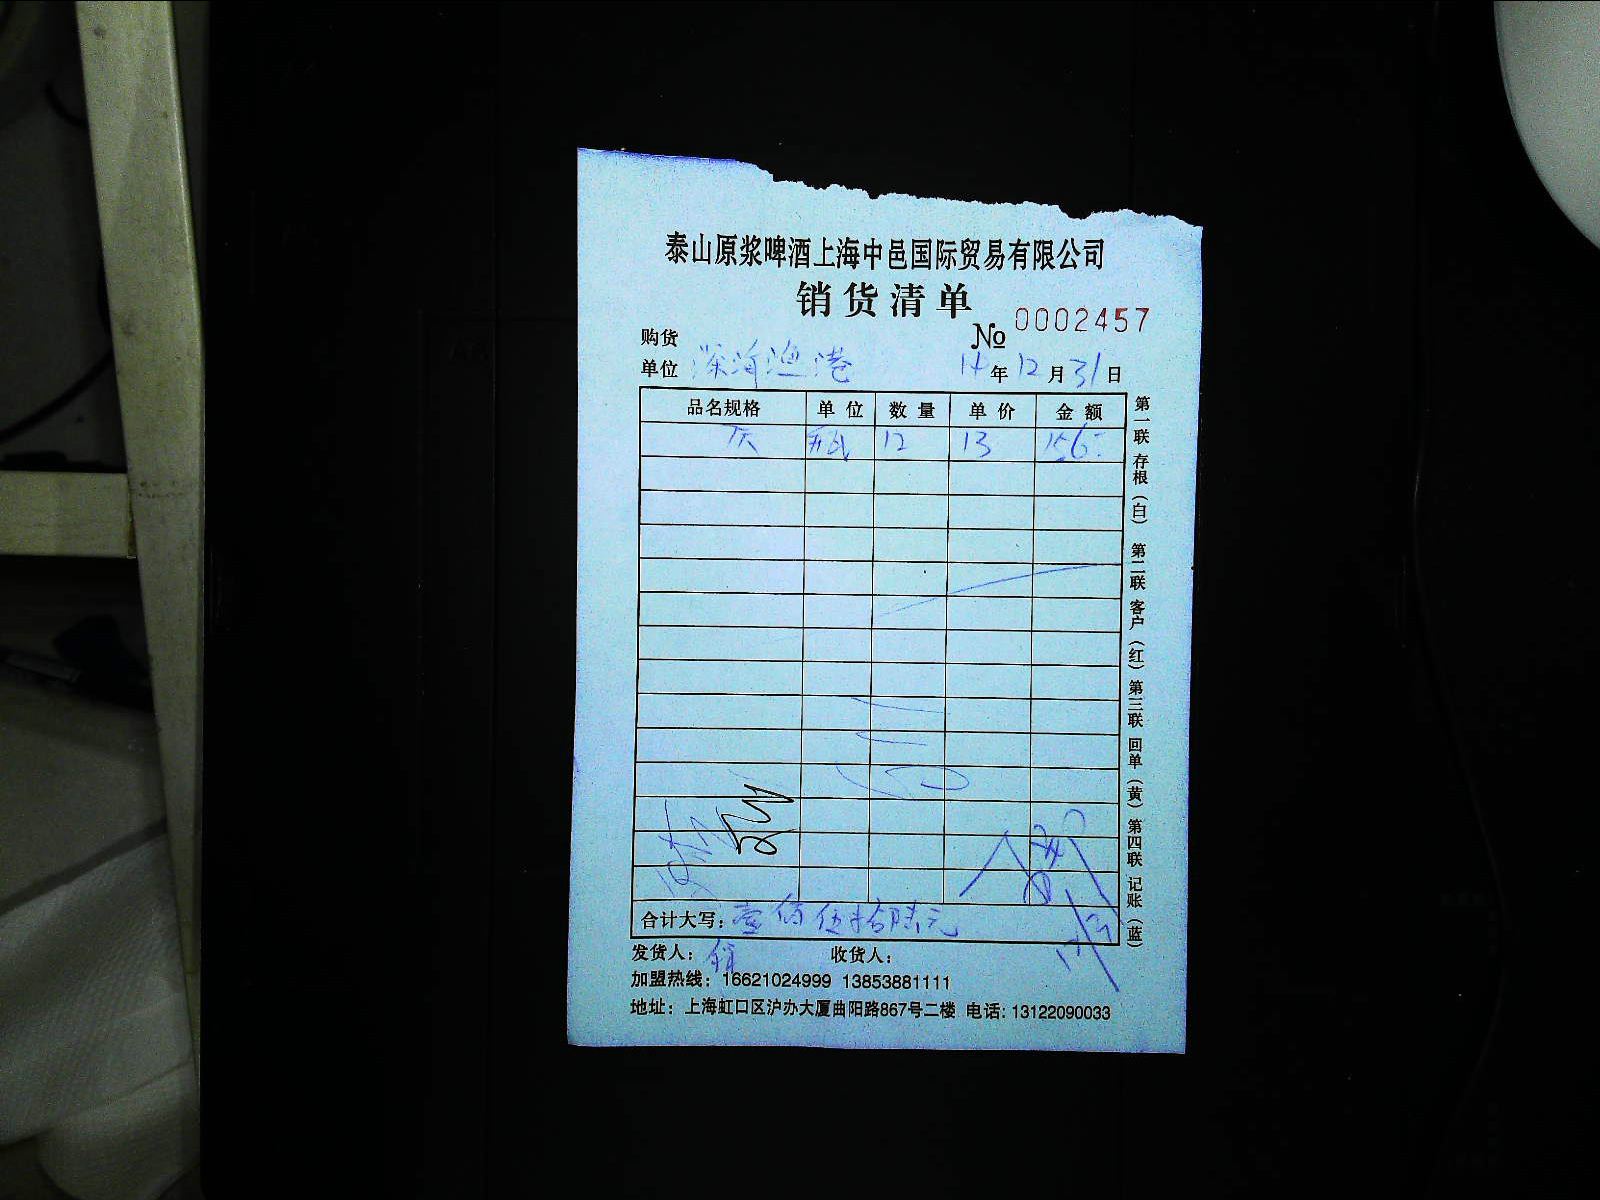 泰山原浆啤酒上海中邑国际贸易有限公司
销货清单
№ 0002457
购货
单位 深海渔港 14年12月31日
品名规格 单位 数量 单价 金额
瓶 12 13 156
合计大写：壹佰伍拾陆元
发货人： 收货人：
加盟热线：16621024999 13853881111
地址：上海虹口区沪办大厦曲阳路867号二楼 电话：13122090033
第一联 存根（白） 第二联 客户（红） 第三联 回单（黄） 第四联 记账（蓝）